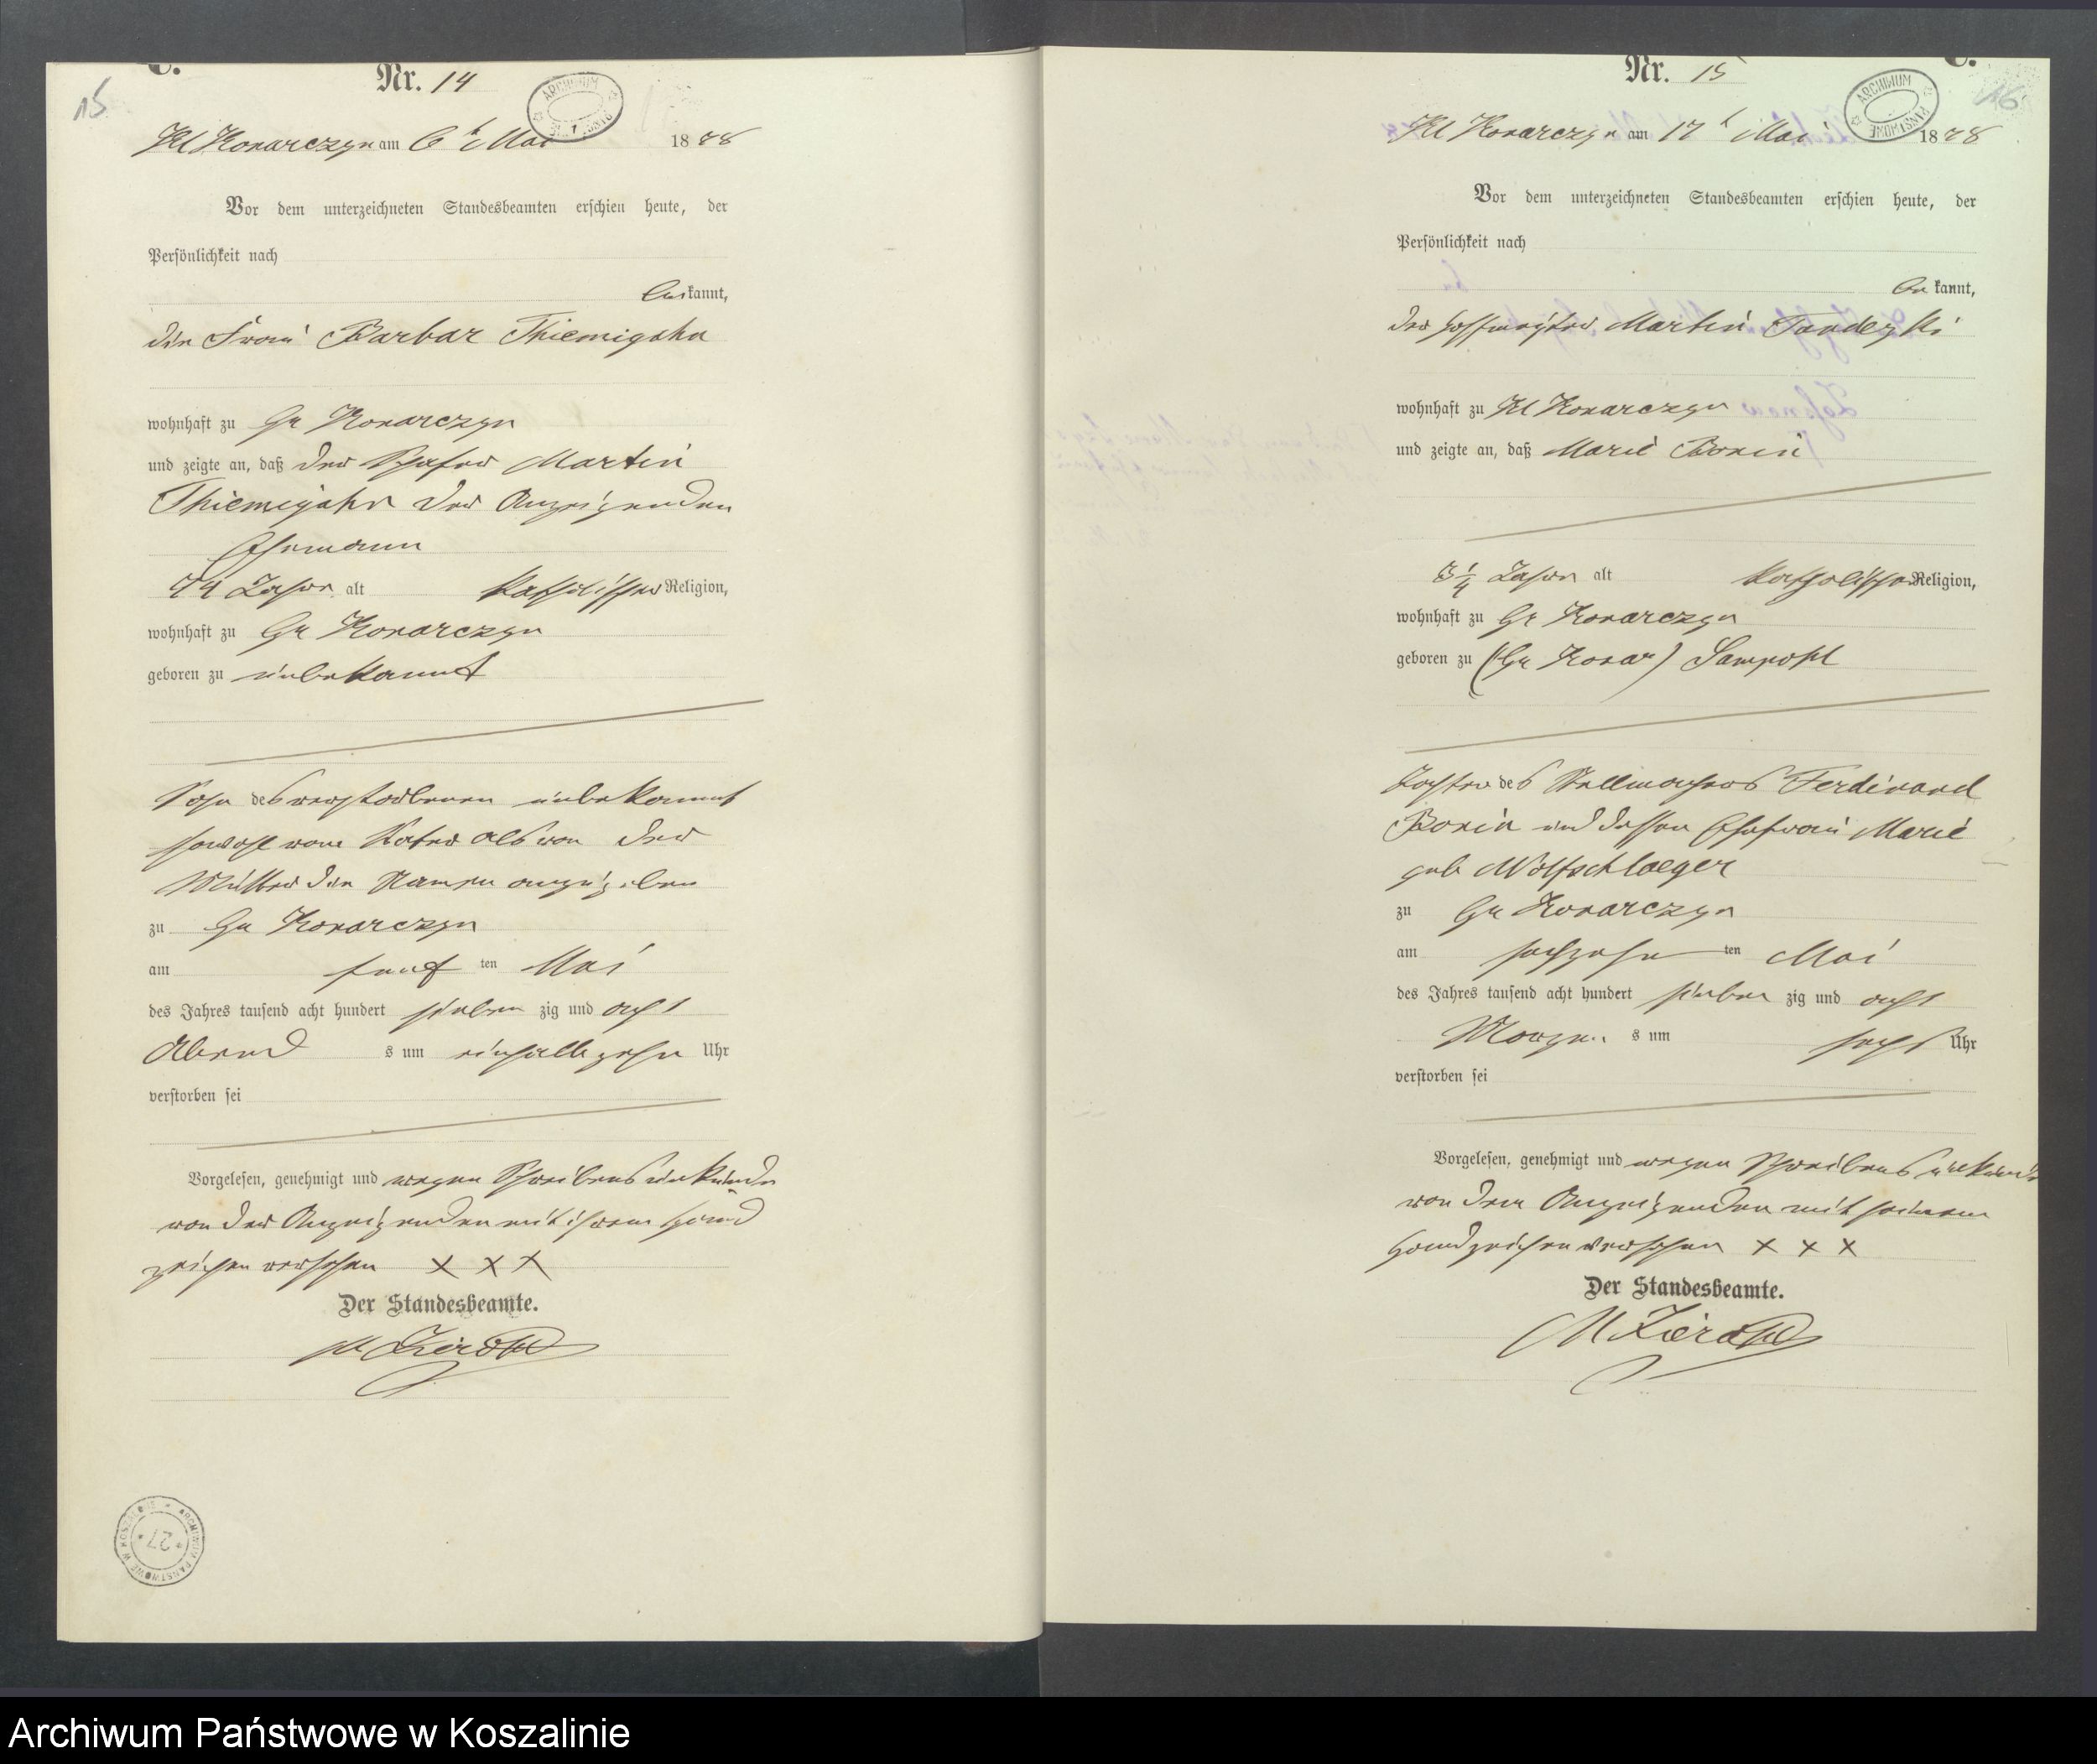 15
C.
Nr. 14
ARCHIWUM PAŃSTWOWE
Kl Konarczyn am 6 t Mai 1878
Vor dem unterzeichneten Standesbeamten erschien heute, der
Persönlichkeit nach
be kannt,
die Frau Barbar Thiemigahn
wohnhaft zu Gr Konarczyn
und zeigte an, daß der Schäfer Martin
Thiemigahn der Anzeigenden
Ehemann
74 Jahre alt katholischer Religion,
wohnhaft zu Gr Konarczyn
geboren zu unbekannt
Sohn des verstorbenen unbekannt
sowohl vom Vater als von der
Mutter den Namen anzugeben
zu Gr Konarczyn
am fünf ten Mai
des Jahres tausend acht hundert sieben zig und acht
Abend s um einhalb zehn Uhr
verstorben sei
Vorgelesen, genehmigt und wegen Schreibensunkunde
von der Anzeigenden mit ihrem Hand
zeichen versehen x x x
Der Standesbeamte.
ARCHIWUM PAŃSTWOWE W KOSZALINIE
27
C.
Nr. 15
ARCHIWUM PAŃSTWOWE
16
Kl Konarczyn am 17 t Mai 1878
Vor dem unterzeichneten Standesbeamten erschien heute, der
Persönlichkeit nach
be kannt,
der Hofmeister Martin
wohnhaft zu Kl Konarczyn
und zeigte an, daß Marie Bonin
3 1/4 Jahre alt katholischer Religion,
wohnhaft zu Gr Konarczyn
geboren zu (Gr Konar) Sampohl
Tochter des Stellmachers Ferdinand
Bonin und dessen Ehefrau Marie
geb Wolfschlaeger
zu Gr Konarczyn
am sechzehn ten Mai
des Jahres tausend acht hundert sieben zig und acht
Morgen s um sechs Uhr
verstorben sei
Vorgelesen, genehmigt und wegen Schreibensunkunde
von dem Anzeigenden mit seinem
Handzeichen versehen x x x
Der Standesbeamte.
Archiwum Państwowe w Koszalinie